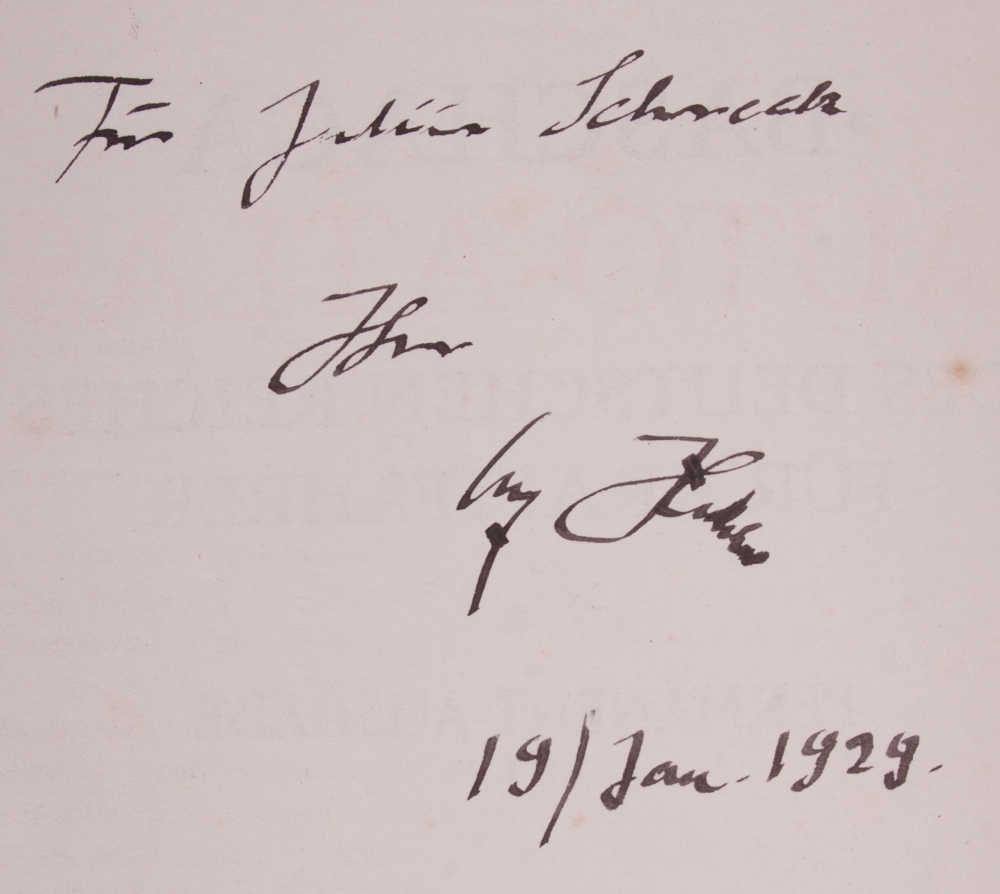 Für Julius Schreck
Ihr
Hitler
19/Jan. 1929.